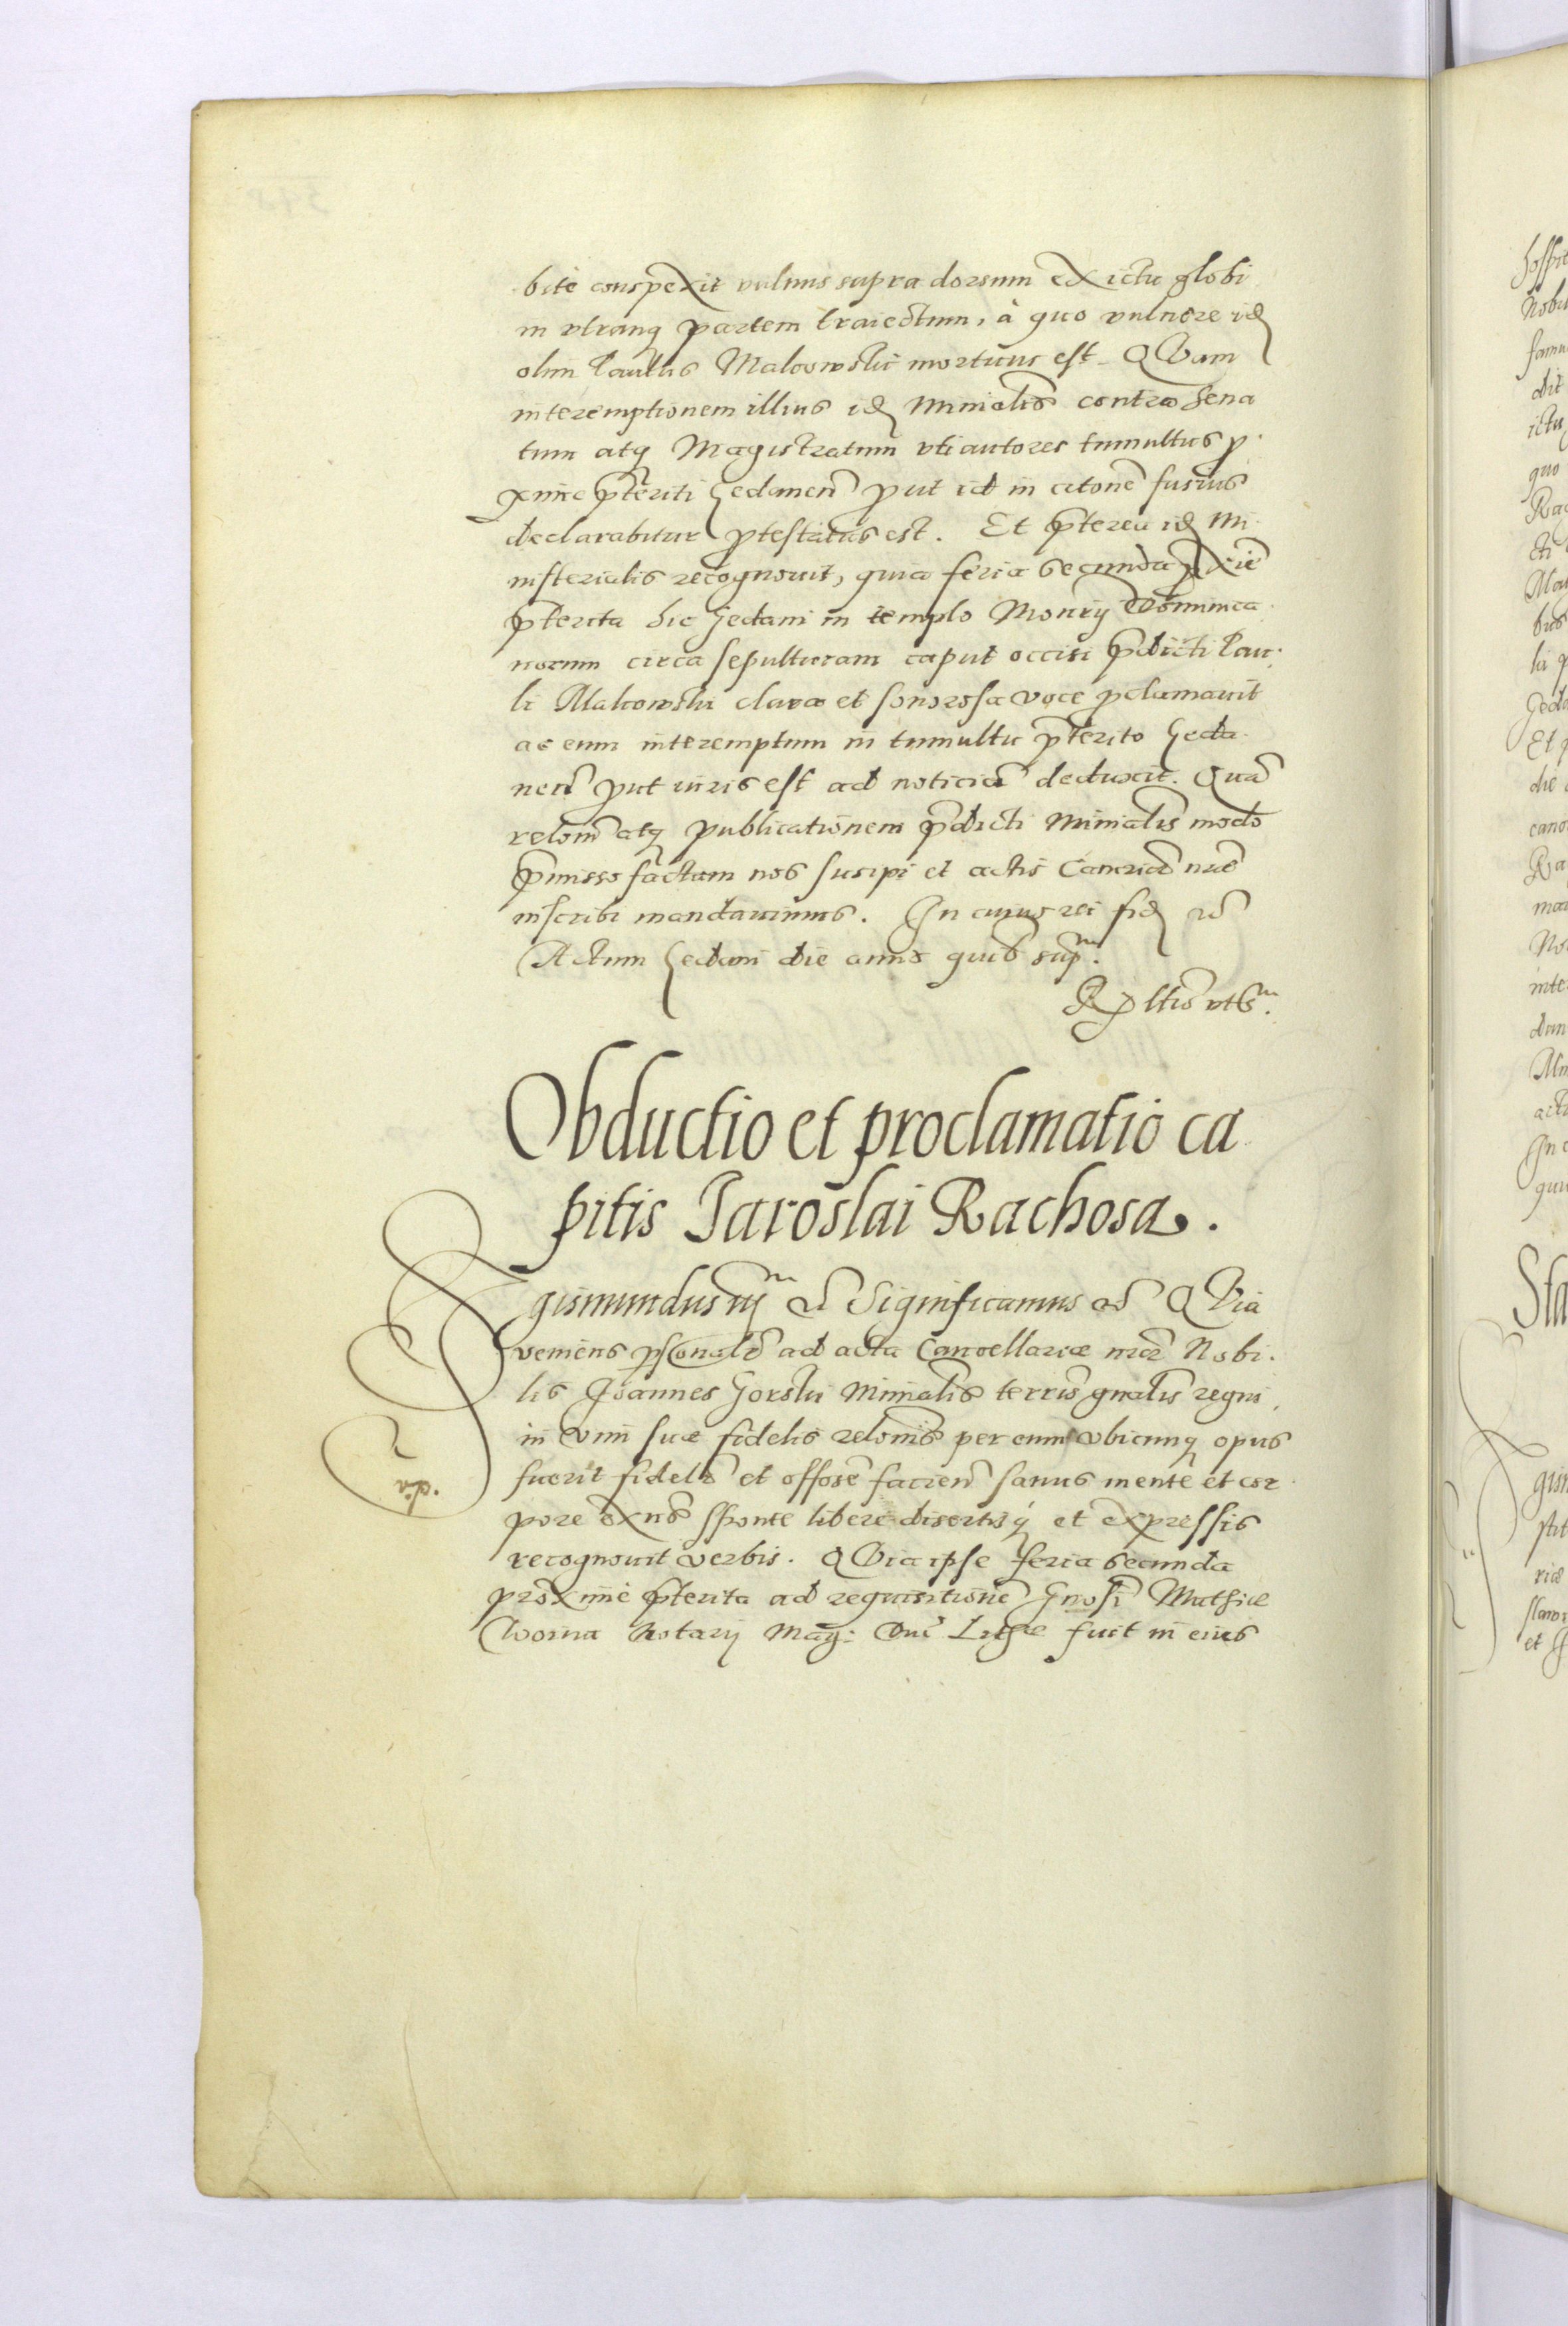 bite conspexit vulnus supra dorsum ex ictu globi
in utranq partem traiectum, à quo vulnere id
olim Paulus Makowski mortuus est. QVam
interemptionem illius id Minialis contra Sena
tum atq Magistratum uti autores tumultus p
xime pteriti Gedanen put id in citone fusius
declarabitur ptestatus est. Et pterea id Mi
nisterialis recognovit, quia feria secunda pxie
pterita hic Gedani in templo Monrÿ Dominica
norum circa sepulturam caput occisi pdicti Pau
li Makowski clara et sonorosa voce pclamavit
ac eum interemptum in tumultu pterito Geda
nen put iuris est ad noticia deduxit. Qua
relom atq publicationem pdicti Minialis modo
pmisso factam nos suscipi et actis Cancriae nrae
inscribi mandavimus. In cuius rei fid etc
Actum Gedani die anno quib supra.
R p ltis ut s.
Obductio et proclamatio ca
pitis Jaroslai Rachosa.
Sigismundus iij etc Significamus etc QVia
veniens psonalr ad acta Cancellariae nrae Nobi
lis Joannes Gorski Minialis terris gnalis regni
in vim suae fidelis relonis per eum ubicunq opus
fuerit fidelr et offose facien sanus mente et cor
pore exns sponte libere disertisq et expressis
recognovit verbis. QVia ipse feria secunda
proxime pterita ad requisitione Gnosi Mathiae
Woina Notarÿ Mag: Duc Lithae fuit in eius
dia